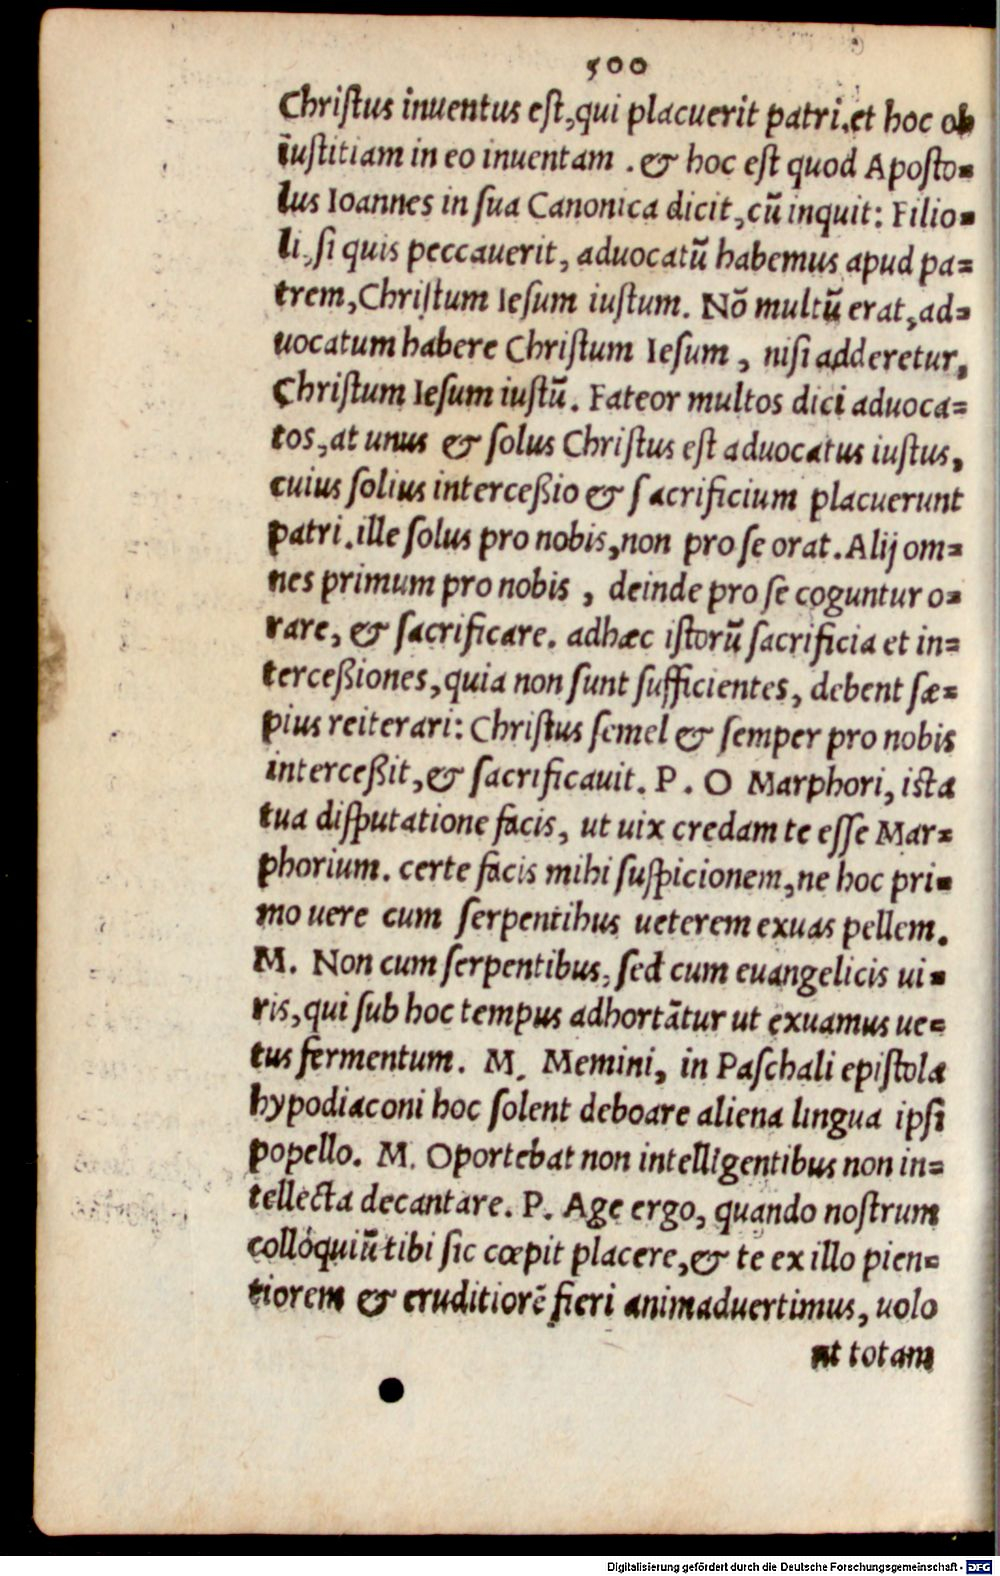 500
Chriſtus inuentus eſt, qui placuerit patri. et hoc ob
iuſtitiam in eo inuentam . & hoc eſt quod Apoſto=
lus Ioannes in ſua Canonica dicit, cũ inquit: Filio=
li, ſi quis peccauerit, aduocatũ habemus apud pa=
trem, Chriſtum Ieſum iuſtum. Nõ multũ erat, ad=
uocatum habere Chriſtum Ieſum , niſi adderetur,
Chriſtum Ieſum iuſtũ. Fateor multos dici aduoca=
tos, at unus & ſolus Chriſtus eſt aduocatus iuſtus,
cuius ſolius interceßio & ſacrificium placuerunt
patri. ille ſolus pro nobis, non pro ſe orat. Alij om=
nes primum pro nobis , deinde pro ſe coguntur o=
rare, & ſacrificare. adhæc iſtorũ ſacrificia et in=
terceßiones, quia non ſunt ſufficientes, debent ſæ=
pius reiterari: Chriſtus ſemel & ſemper pro nobis
interceßit, & ſacrificauit. P. O Marphori, iſta
tua diſputatione facis, ut uix credam te eſſe Mar=
phorium. certe facis mihi ſuſpicionem, ne hoc pri=
mo uere cum ſerpentibus ueterem exuas pellem.
M. Non cum ſerpentibus, ſed cum euangelicis ui=
ris, qui ſub hoc tempus adhortãtur ut exuamus ue=
tus fermentum. M. Memini, in Paſchali epiſtola
hypodiaconi hoc ſolent deboare aliena lingua ipſi
popello. M. Oportebat non intelligentibus non in=
tellecta decantare. P. Age ergo, quando noſtrum
colloquiũ tibi ſic cœpit placere, & te ex illo pien=
tiorem & eruditiorẽ fieri animaduertimus, uolo
ut totam
Digitalisierung gefördert durch die Deutsche Forschungsgemeinschaft - DFG